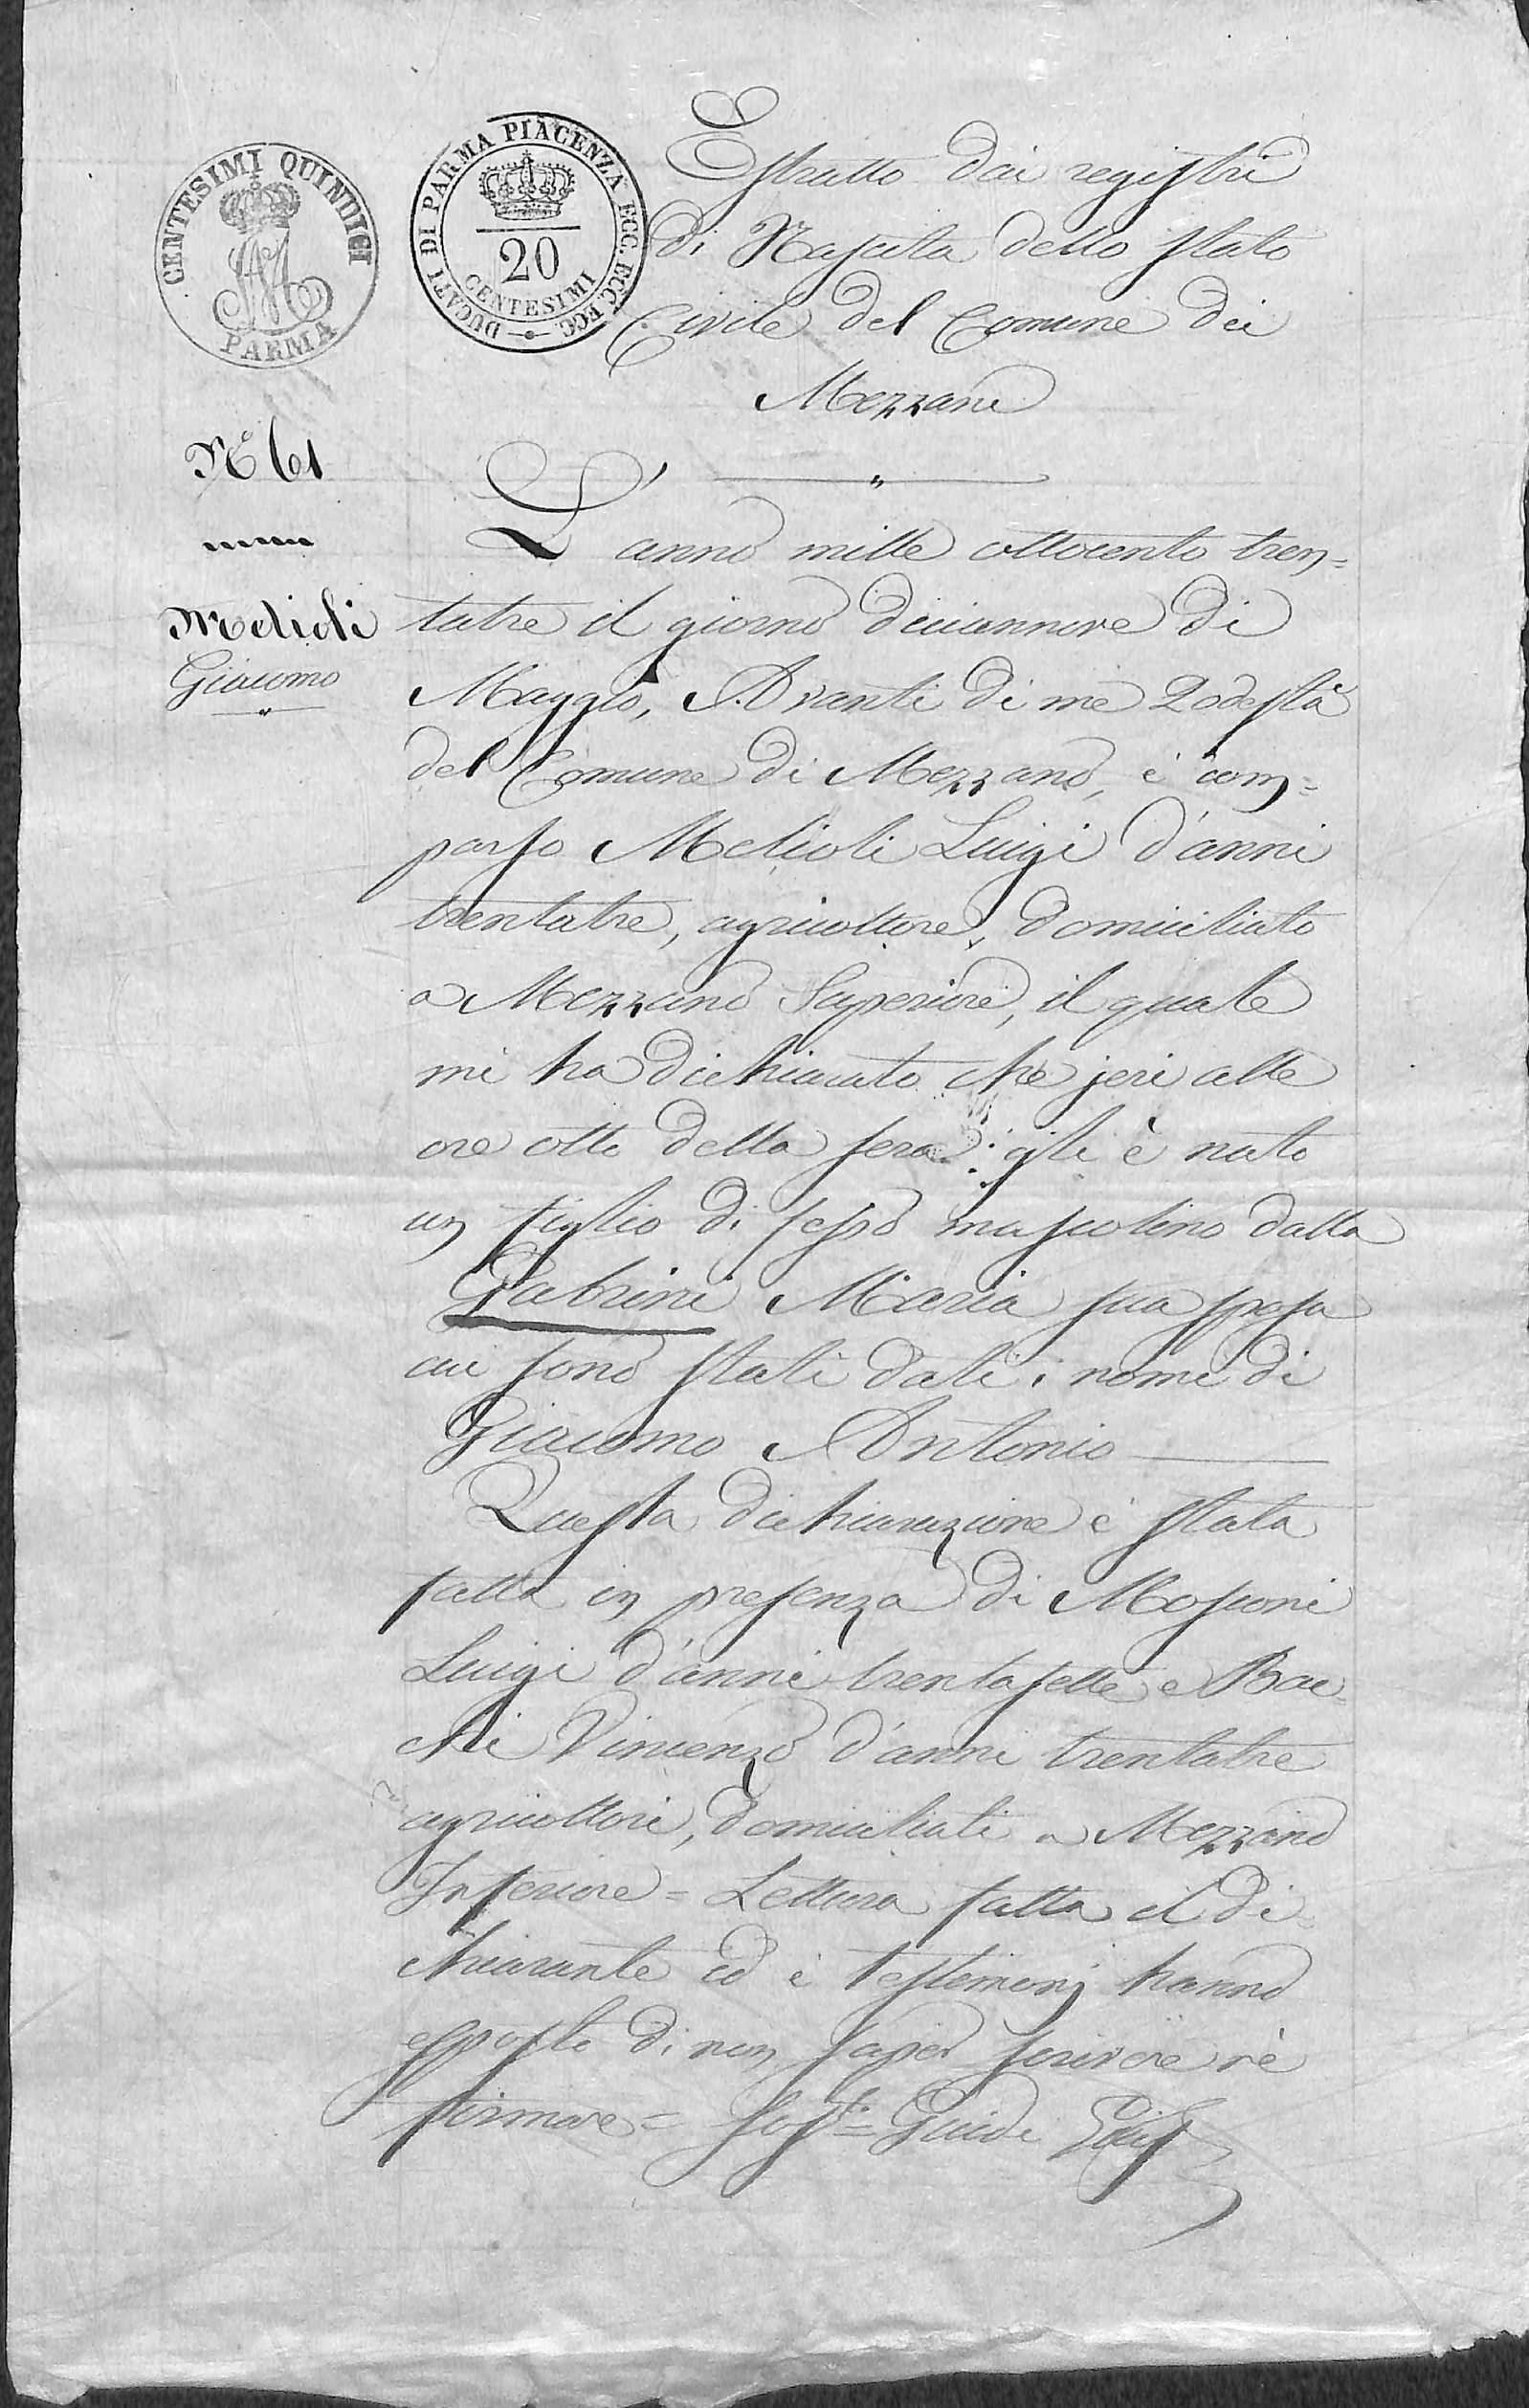 CENTESIMI QUINDICI
PARMA
DUCATI DI PARMA PIACENZA ECC. ECC. ECC.
20
CENTESIMI
Estratto dai registri
di Nascita dello stato
Civile del Comune dei
Mezzani
N.º 61
Melioli
Giacomo
L'anno mille ottocento tren=
tatre il giorno diciannove di
Maggio, Avanti di me Podestà
del Comune di Mezzano, è com=
parso Melioli Luigi d'anni
trentatre, agricoltore, domiciliato
a Mezzano Superiore, il quale
mi ha dichiarato che jeri alle
ore otto della sera gli è nato
un figlio di sesso mascolino dalla
Gabrini Maria sua sposa
cui sono stati dati i nomi di
Giacomo Antonio
Questa dichiarazione è stata
fatta in presenza di Mosconi
Luigi d'anni trentasette e Bac=
chi Vincenzo d'anni trentatre
agricoltori, domiciliati a Mezzano
Inferiore = Lettura fatta il di=
chiarante ed i testimonj hanno
esposto di non saper scrivere nè
firmare = Sott.º = Guidi